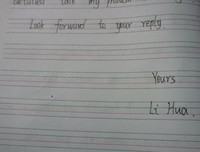 my
Look forward to your reply
Yours
Li Hua.